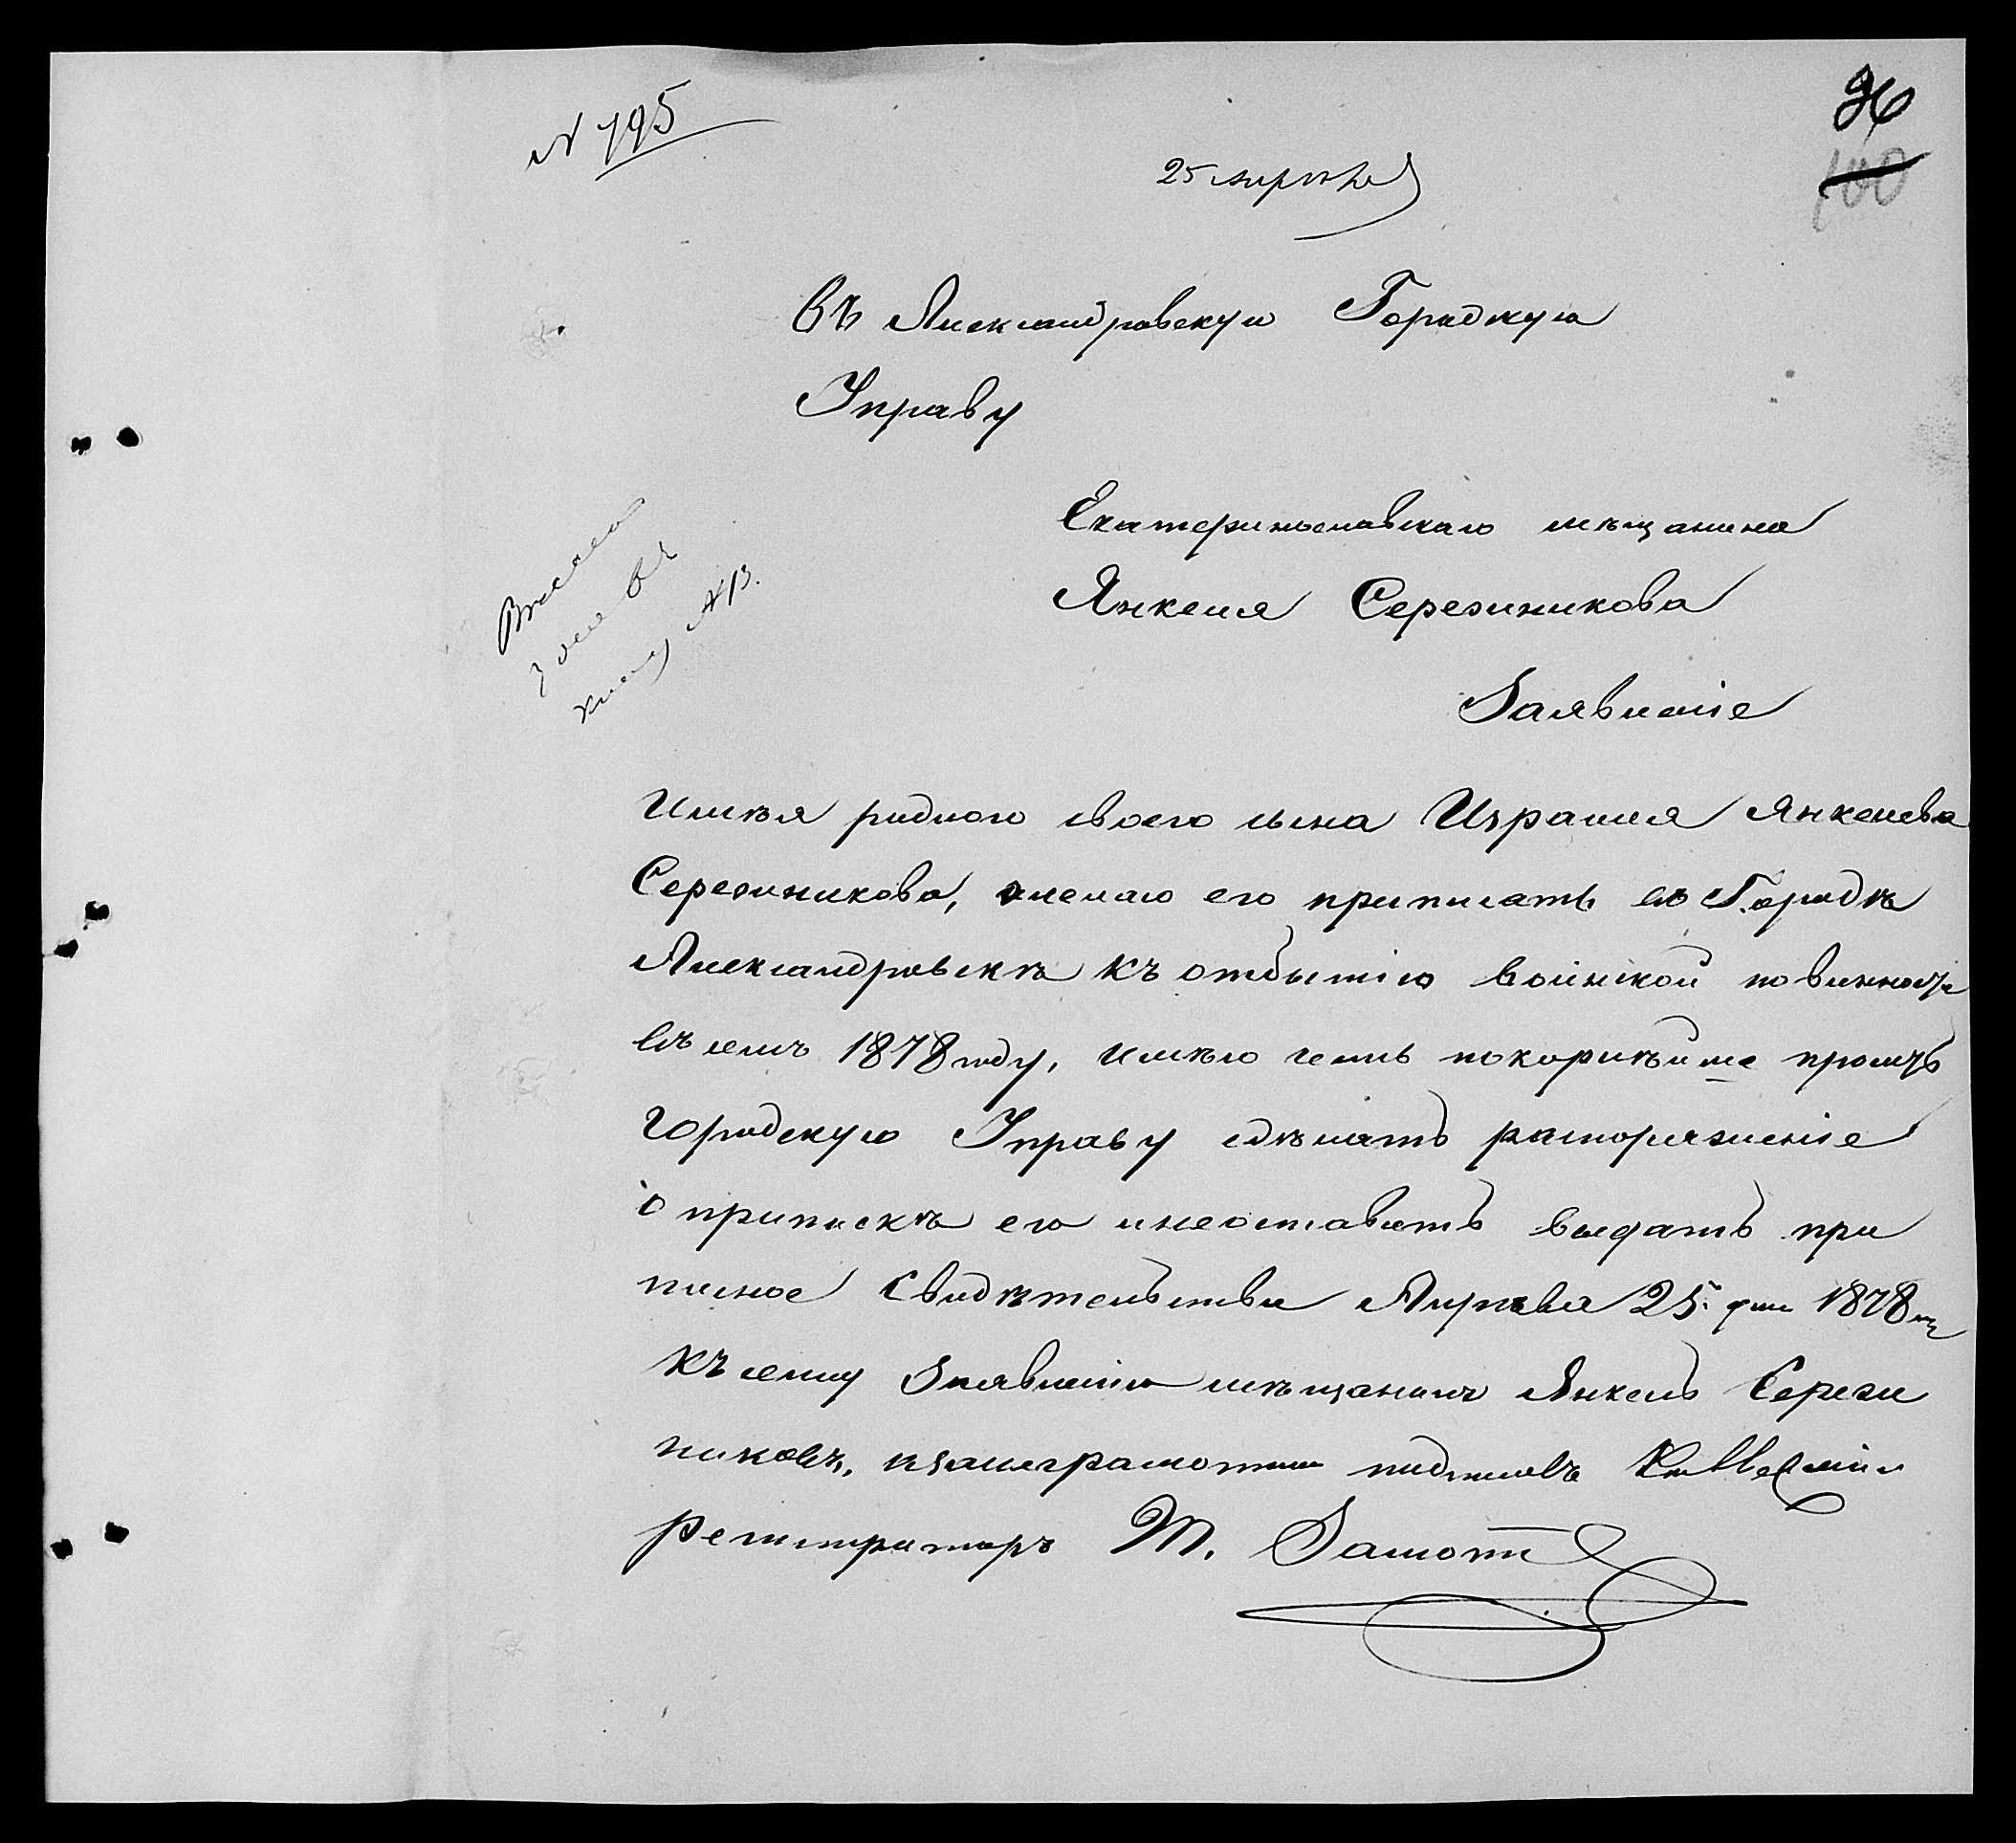 N 795
96
100
25 апрѣля
Въ Александровскую Городскую
Управу
Екатеринославскаго мѣщанина
Янкеля Сережникова
Заявленіе
книгу N 13.
Имѣя роднаго своего сына Израиля Янкелева
Сережникова, желаю его приписать въ Городѣ
Александровскѣ къ отбытію воинской повинности
въ семъ 1878 году, имѣю честь покорнѣйше просить
Городскую Управу сдѣлать распоряженіе
о припискѣ его и неоставить выдать при
писное Свидѣтельство Апрѣля 25. дня 1878 г.
Къ сему Заявленію мѣщанинъ Янкель Сережи
никовъ, подписалъ
регистраторъ М.